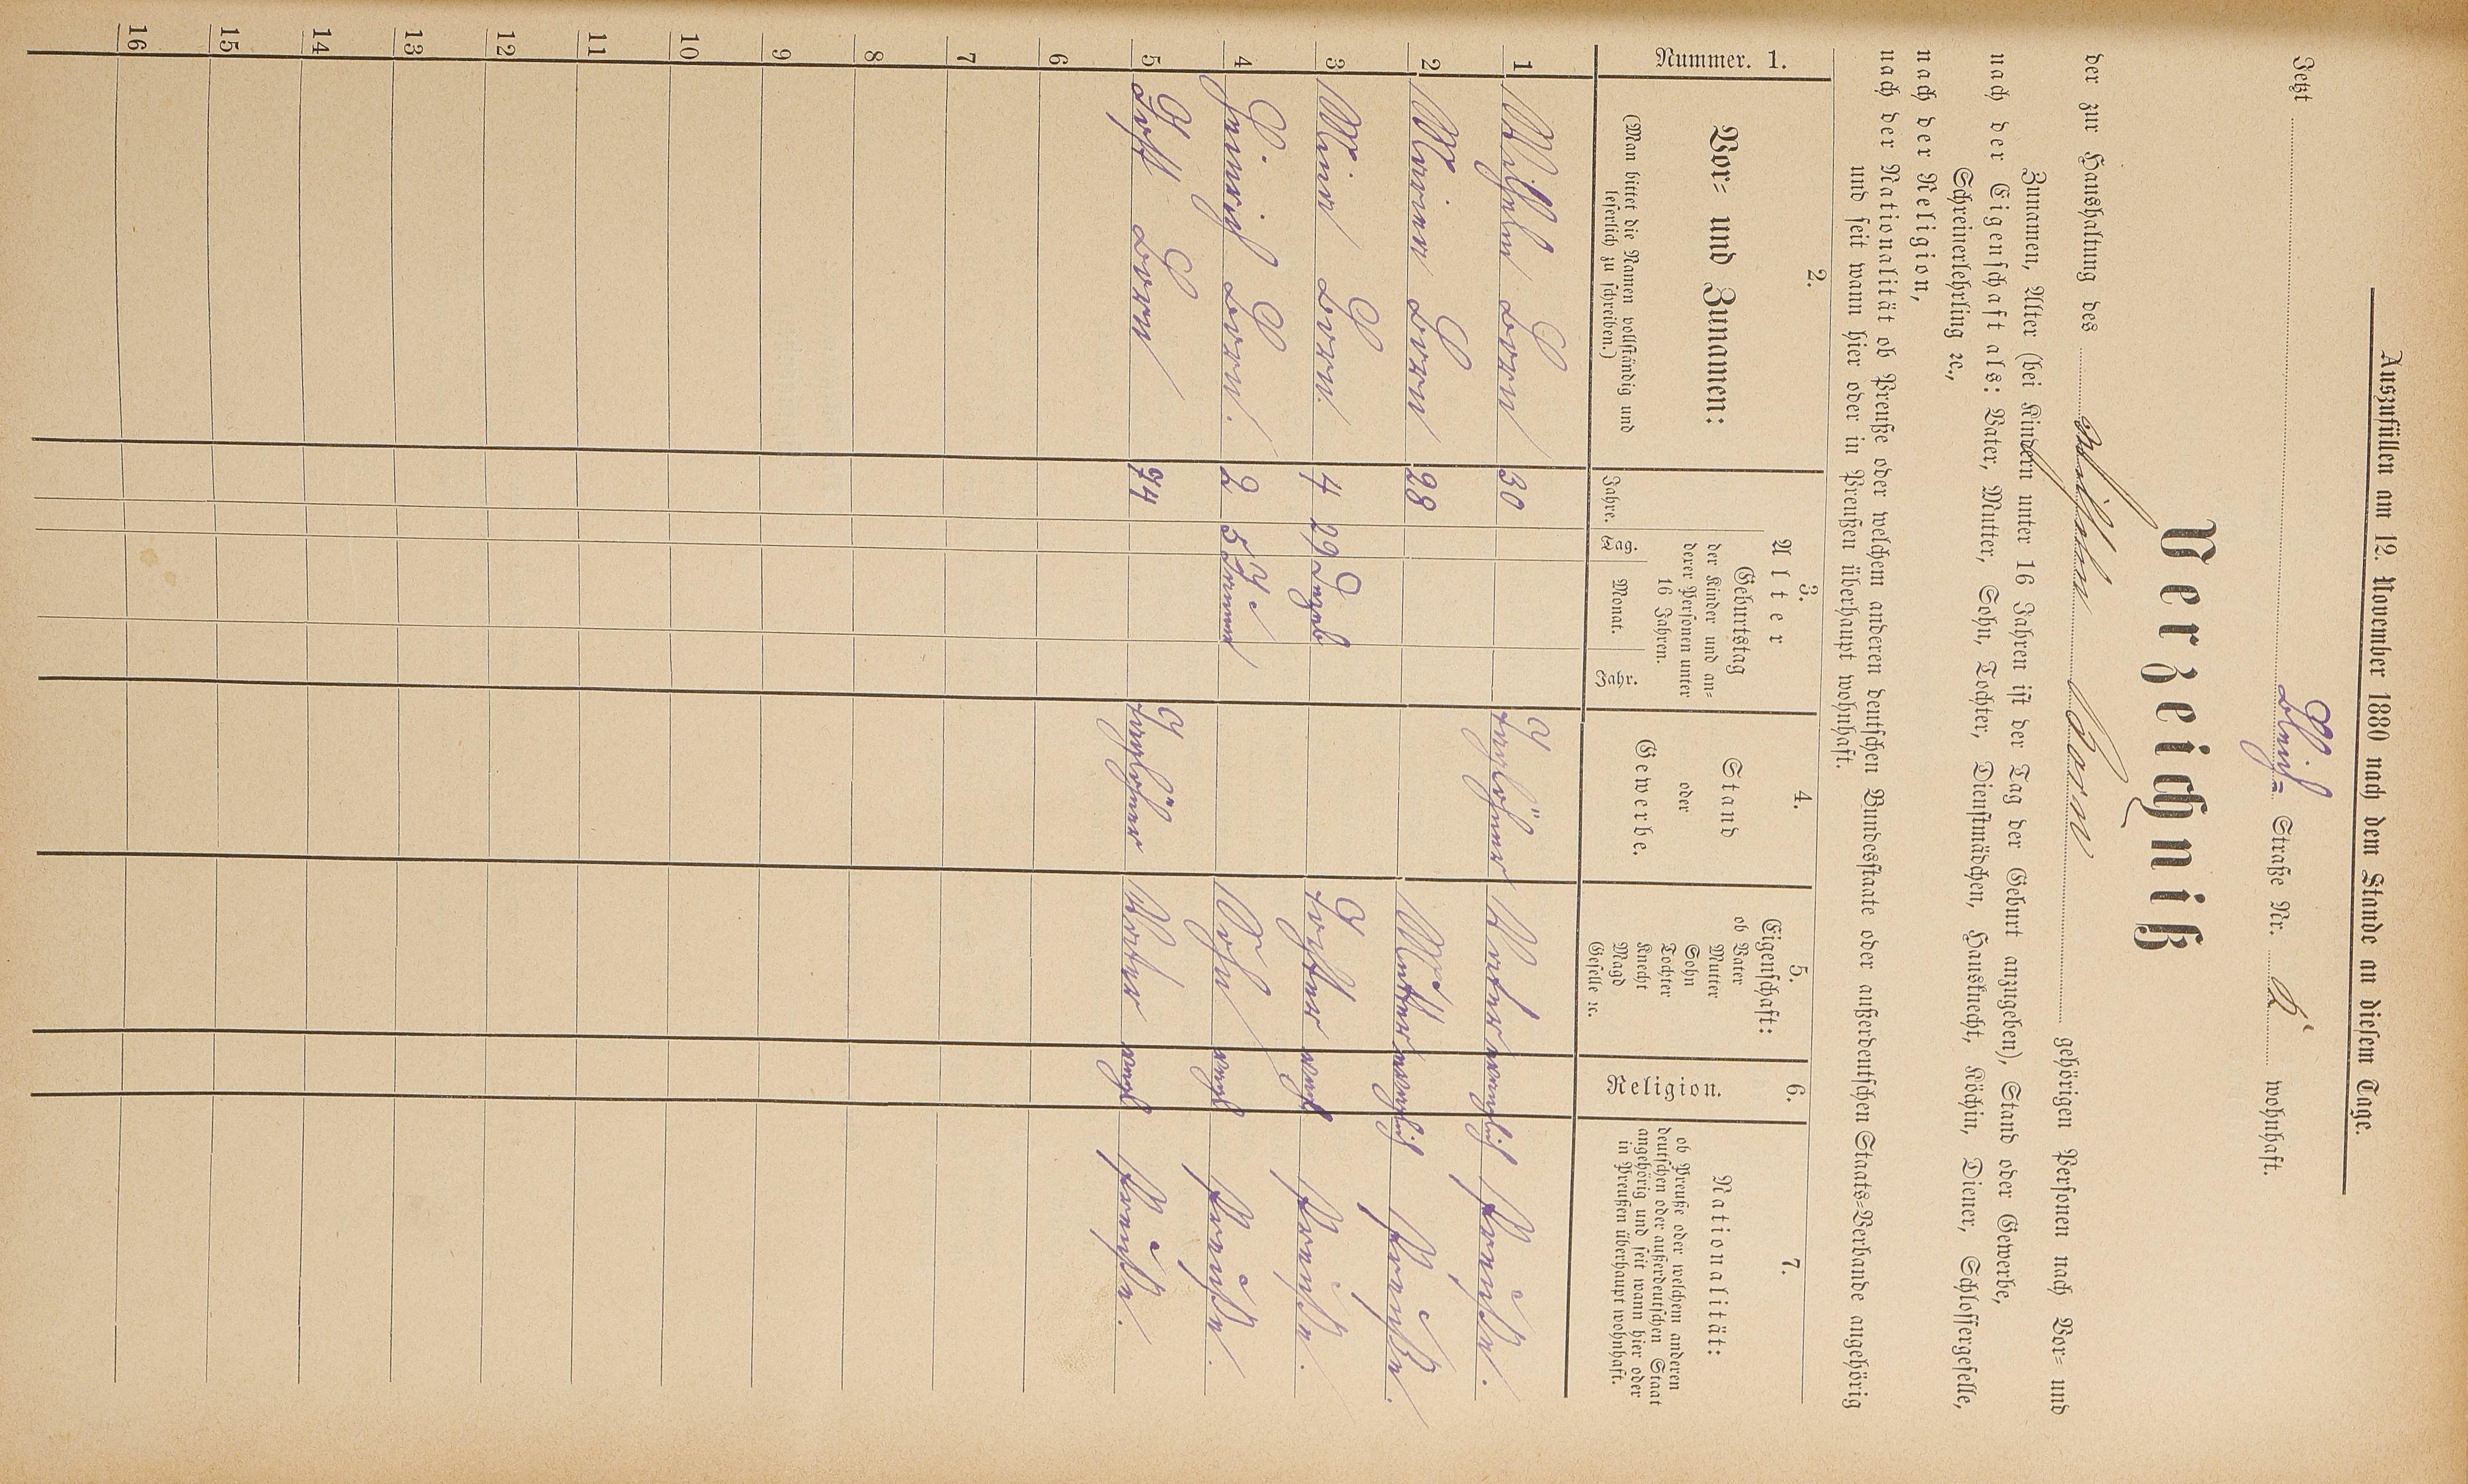 Auszufüllen am 12. November 1880 nach dem Stande an diesem Tage.
Jetzt Bleich= Straße Nr. wohnhaft.
Verzeichniß
der zur Haushaltung des Wilhelm Born gehörigen Personen nach Vor= und
Zunamen, Alter (bei Kindern unter 16 Jahren ist der Tag der Geburt anzugeben), Stand oder Gewerbe,
nach der Eigenschaft als: Vater, Mutter, Sohn, Tochter, Dienstmädchen, Hausknecht, Köchin, Diener, Schlossergeselle,
Schreinerlehrling ꝛc.,
nach der Religion,
nach der Nationalität ob Preuße oder welchem anderen deutschen Bundesstaate oder außerdeutschen Staats=Verbande angehörig
und seit wann hier oder in Preußen überhaupt wohnhaft.
Nummer. 1.
2.
Vor= und Zunamen:
(Man bittet die Namen vollständig und
leserlich zu schreiben.)
3.
Alter
Jahre.
Geburtstag
der Kinder und an=
derer Personen unter
16 Jahren.
Tag. Monat. Jahr.
4.
Stand
oder
Gewerbe.
5.
Eigenschaft:
ob Vater
Mutter
Sohn
Tochter
Knecht
Magd
Geselle ꝛc.
6.
Religion.
7.
Nationalität:
ob Preuße oder welchem anderen
deutschen oder außerdeutschen Staat
angehörig und seit wann hier oder
in Preußen überhaupt wohnhaft.
1 Wilhelm Born 30 Taglöhner Vater evanglisch Preuße.
2 Born 28 Mutter evanglisch Preuße.
3 Mina Born. 4 29 Dezeb Tochter evangl Preuße.
4 Heinrich Born. 2 5 Februar Sohn evangl Preuße.
5 Born 74 Taglöhner Vater evangl Preuße.
6
7
8
9
10
11
12
13
14
15
16